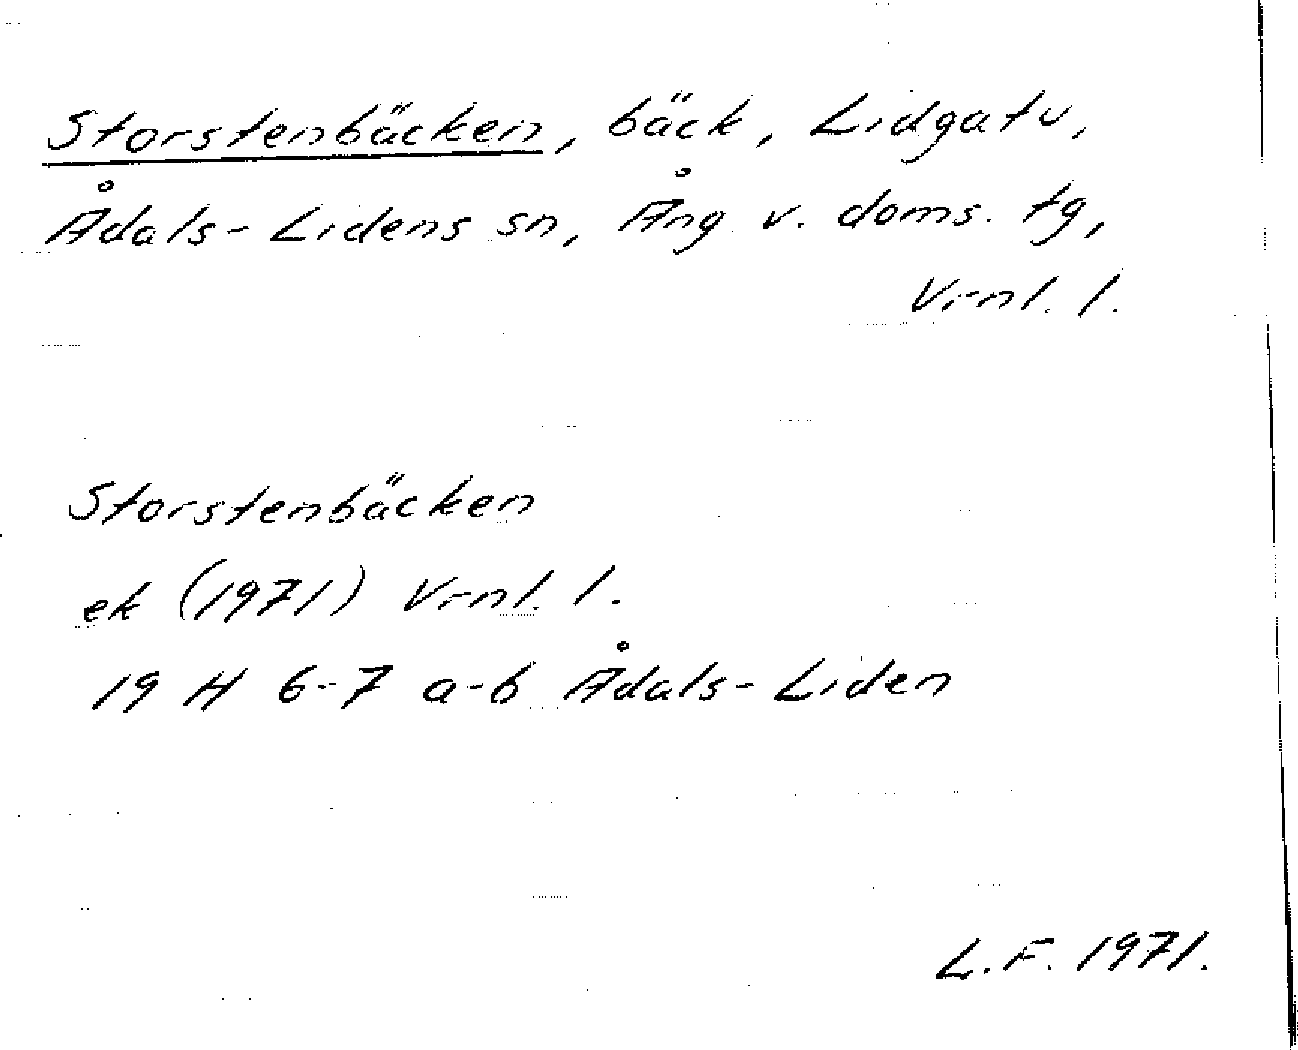 Storstenbäcken, bäck, Lidgatu,
Ådals-Lidens sn, Ång v. doms. tg,
Vrnl. l.
Storstenbäcken
ek (1971) Vrnl. l.
19 H 6-7 a-b Ådals-Liden
L.F. 1971.